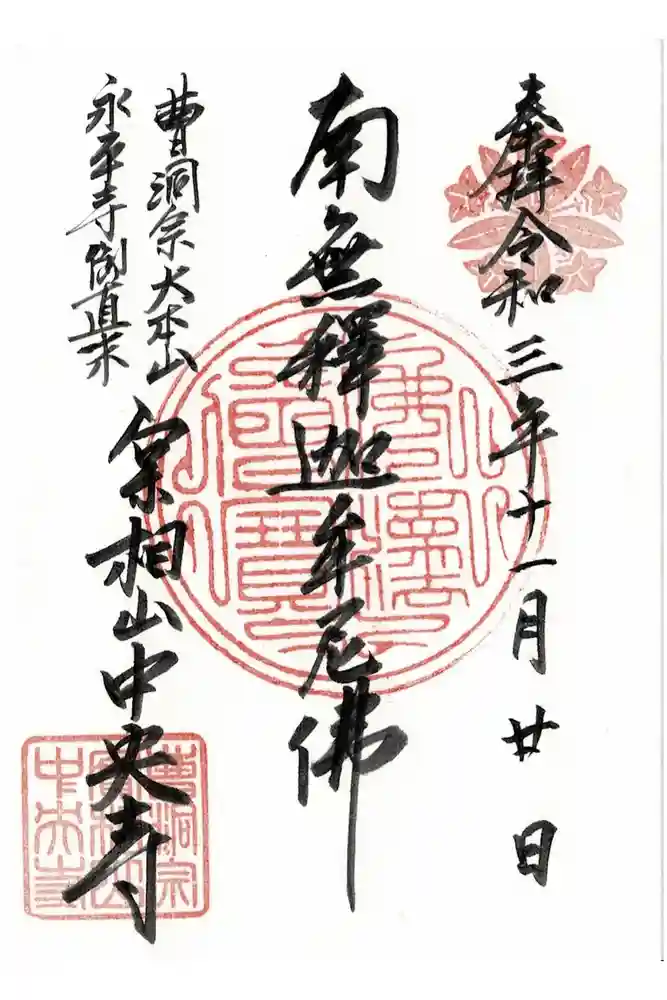 奉拜令和三年十一月廿日
南無釋迦牟尼佛
曹洞宗大本山
永平寺御直末
實相山中央寺
佛法僧寶
曹洞宗
實相山
中央寺